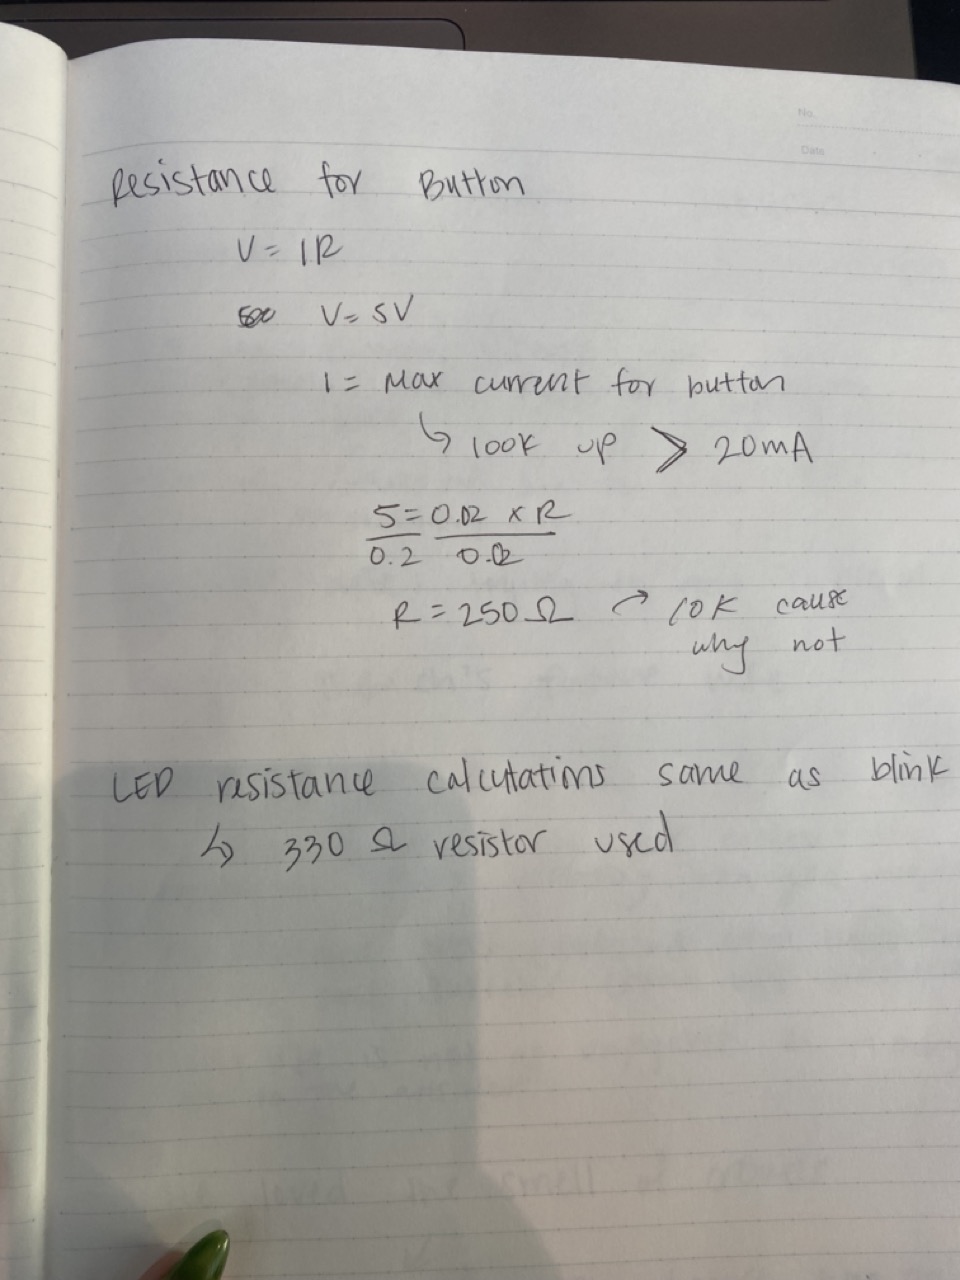 No.
Date
Resistance for Button
V = IR
V = 5V
I = Max current for button
↳ look up > 20mA
5 = 0.02 x R
0.2 0.02
R = 250Ω → 10K cause
why not
LED resistance calculations same as blink
↳ 330 Ω resistor used